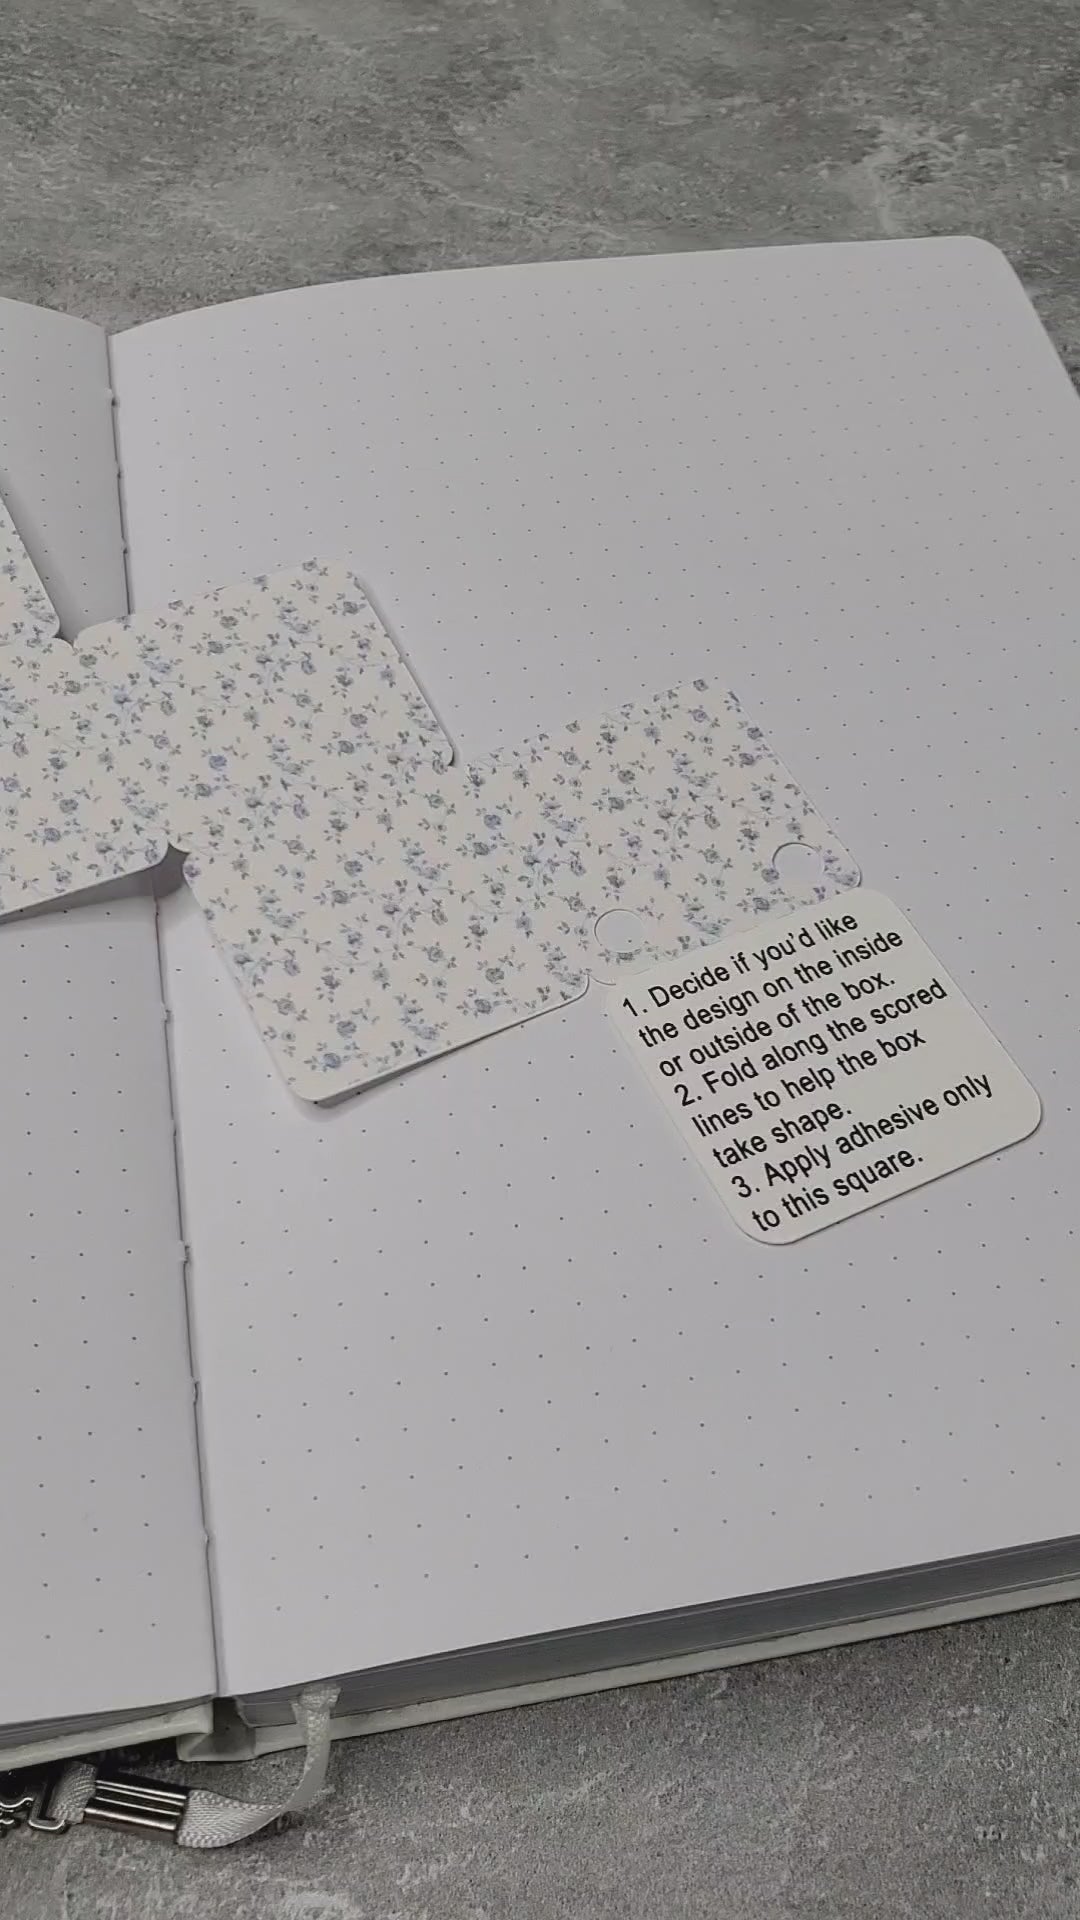 1. Decide if you'd like
the design on the inside
or outside of the box.
2. Fold along the scored
lines to help the box
take shape.
3. Apply adhesive only
to this square.